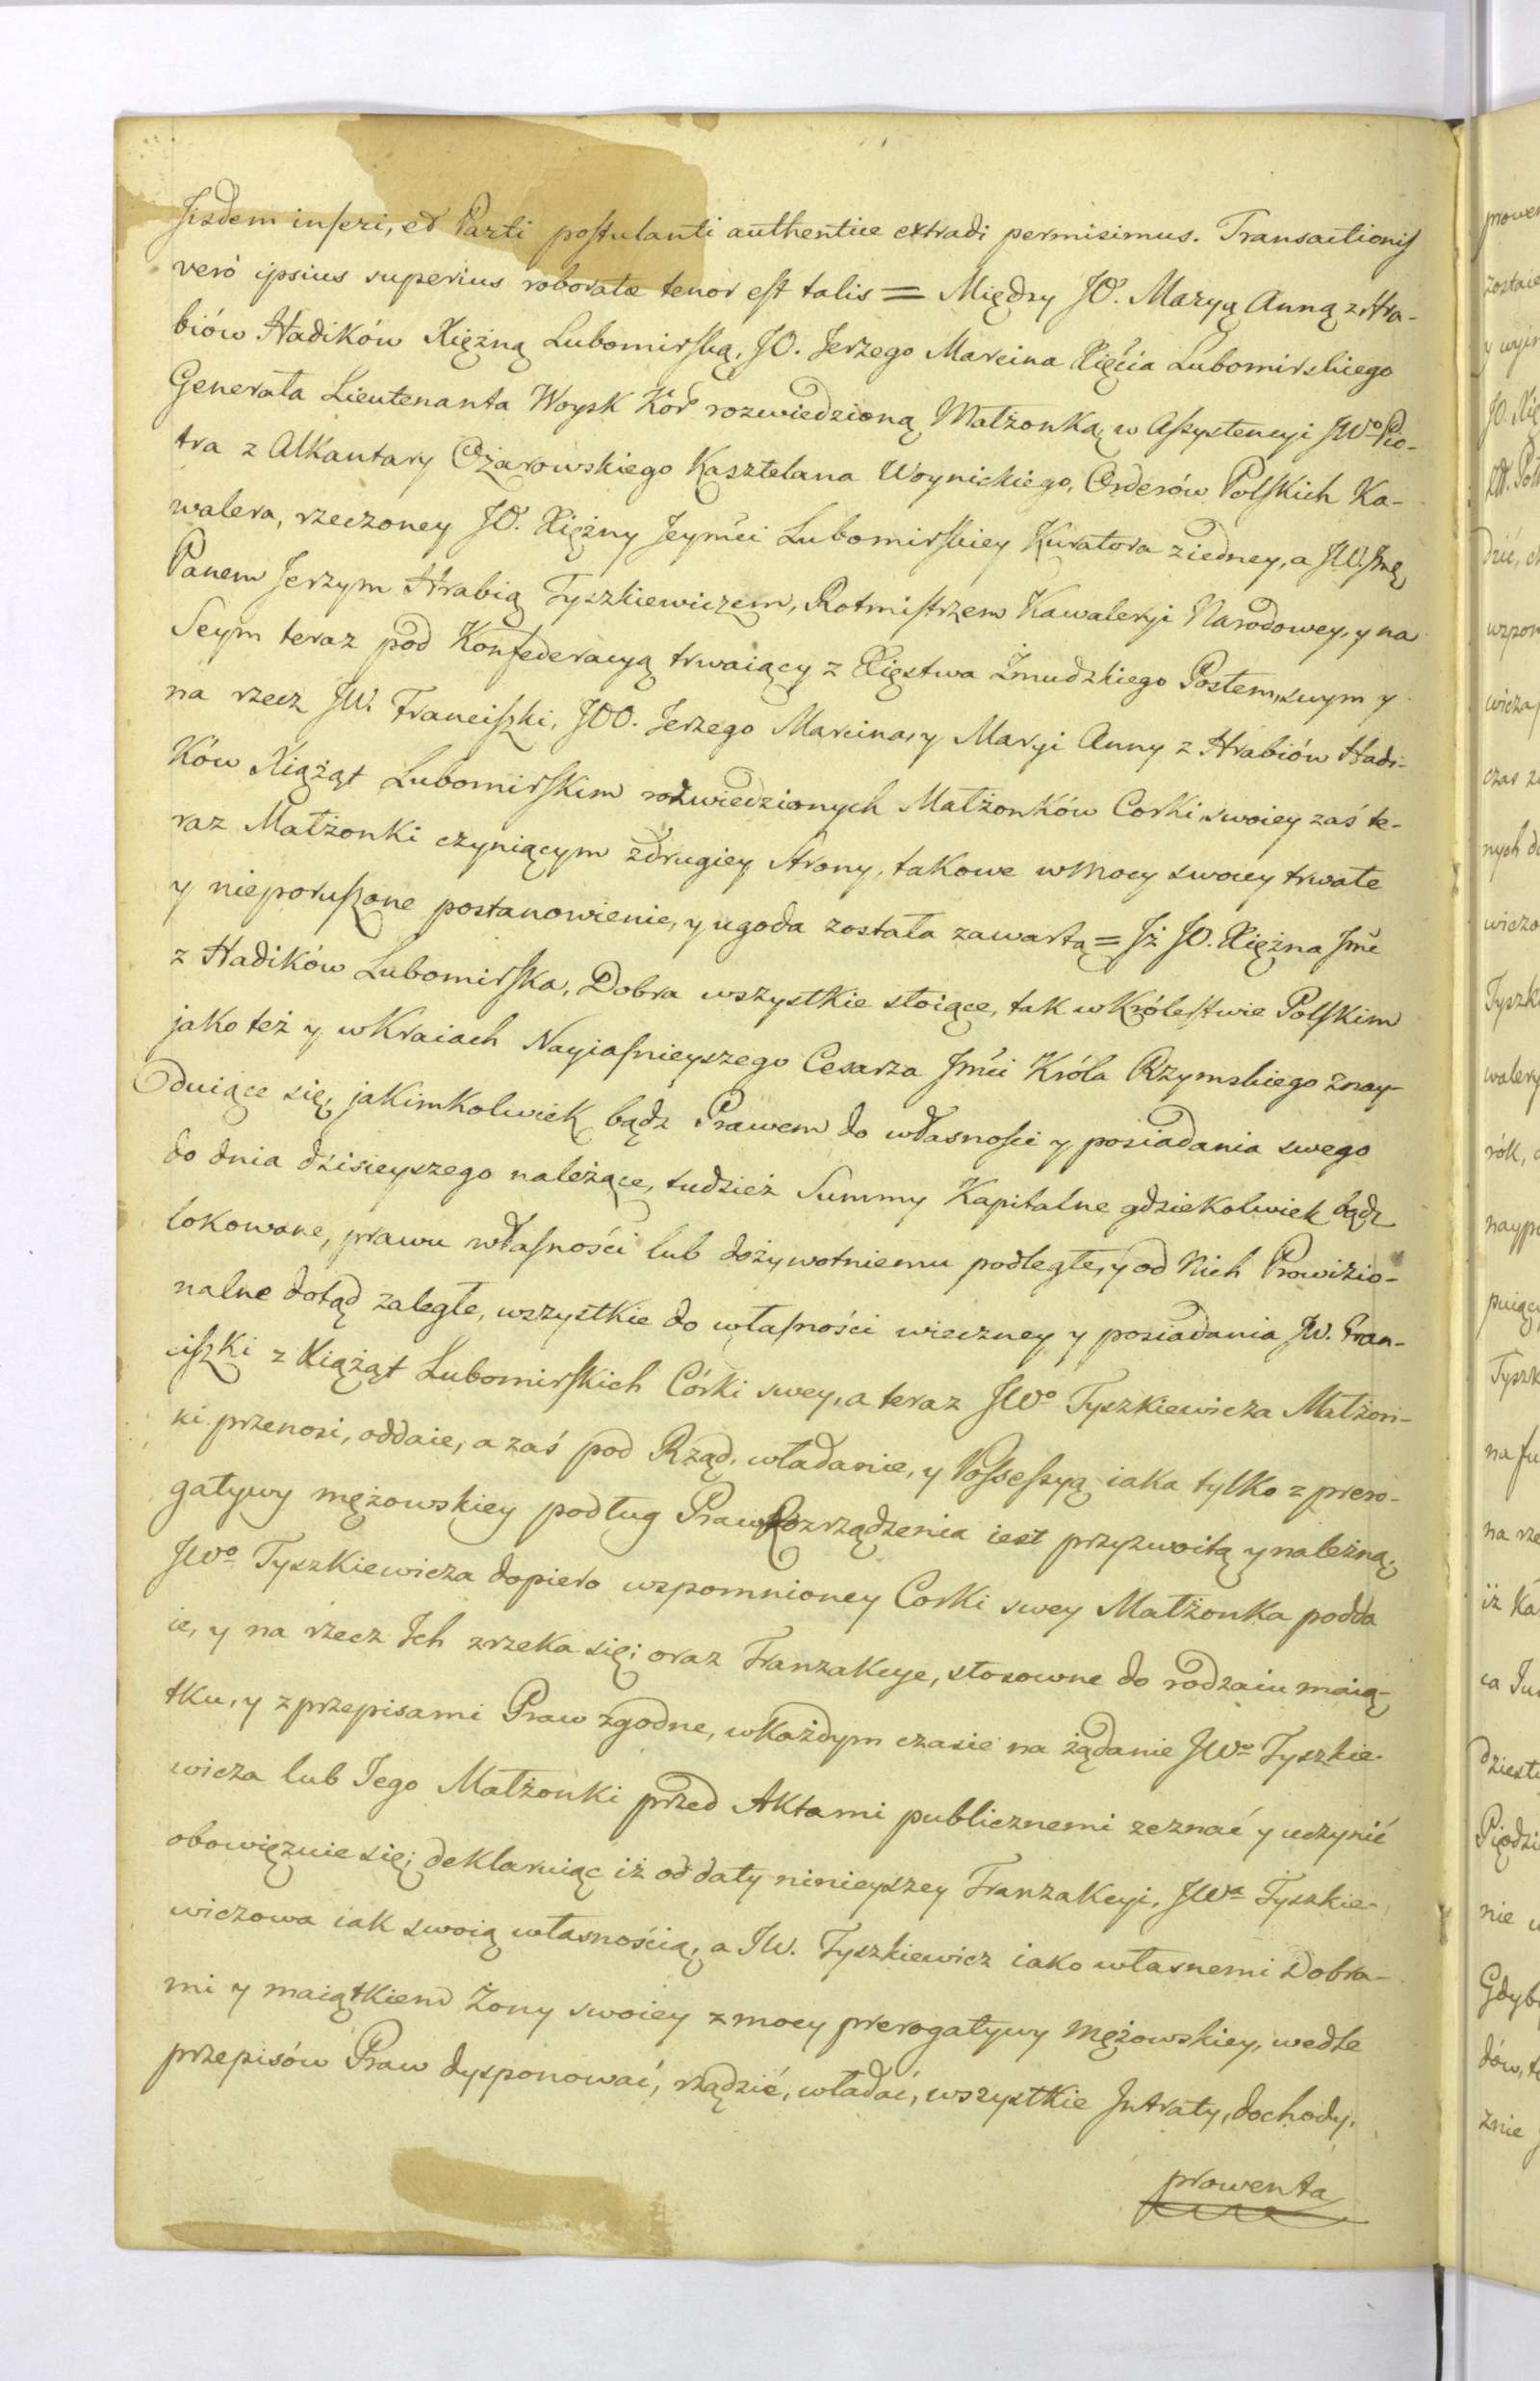 Jisdem inseri, et Parti postulanti authentice extradi permisimus. Transactionis
verò ipsius superius roboratæ tenor est talis = Między JO. Maryą Anną z Hra-
biów Hadików Xiężną Lubomirską, JO. Jerzego Marcina Xięcia Lubomirskiego
Generała Lieutenanta Woysk Kor. rozwiedzioną Małżonką, w Assystencyi JWo Pio-
tra z Alkantary Ożarowskiego Kasztelana Woynickiego, Orderów Polskich Ka-
walera, rzeczoney JO. Xiężny Jeymci Lubomirskiey Kuratora z iedney, a JW. Jmę
Panem Jerzym Hrabią Tyszkiewiczem, Rotmistrzem Kawaleryi Narodowey, y na
Seym teraz pod Konfederacyą trwaiący z Xięstwa Żmudzkiego Posłem, swym y
na rzecz JW. Franciszki, JOO. Jerzego Marcina, y Maryi Anny z Hrabiów Hadi-
ków Xiążąt Lubomirskim rozwiedzionych Małżonków Corki, swoiey zaś te-
raz Małżonki czyniącym z drugiey strony, takowe w mocy swoiey trwałe
y nieporuszone postanowienie, y ugoda została zawartą = Jż JO. Xiężna Jmć
z Hadików Lubomirska, Dobra wszystkie stoiące, tak w Królestwie Polskim
jako też y w Kraiach Nayiaśnieyszego Cesarza Jmci Króla Rzymskiego znay-
duiące się, jakimkolwiek bądz Prawem do własności y posiadania swego
do dnia dzisieyszego należące, tudzież Summy Kapitalne gdziekolwiek bądz
lokowane, prawu własności lub dożywotniemu podległe, y od Nich Prowizio-
nalne dotąd zaległe, wszystkie do własności wieczney y posiadania JW. Fran-
ciszki z Xiążąt Lubomirskich Córki swey, a teraz JWo Tyszkiewicza Małżon-
ki przenosi, oddaie, a zaś pod Rząd, władanie, y Possessyą iaka tylko z prero-
gatywy mężowskiey podług Praw Rozrządzenia iest przyzwoitą y należną,
JWo Tyszkiewicza dopiero wspomnioney Corki swey Małżonka podda
ie, y na rzecz Jch zrzeka się; oraz Tranzakcye, stosowne do rodzaiu maią-
tku, y z przepisami Praw zgodne, w każdym czasie na żądanie JWo Tyszkie-
wicza lub Jego Małżonki przed Aktami publicznemi zeznać y uczynić
obowięzuie się; deklaruiąc iż od daty ninieyszey Tranzakcyi, JWa Tyszkie-
wiczowa iak swoią własnością, a JW. Tyszkiewicz iako własnemi Dobra-
mi y maiątkiem Żony swoiey z mocy prerogatywy Mężowskiey, wedle
przepisów Praw dysponować, rządzić, władać, wszystkie Jntraty, dochody,
prowenta